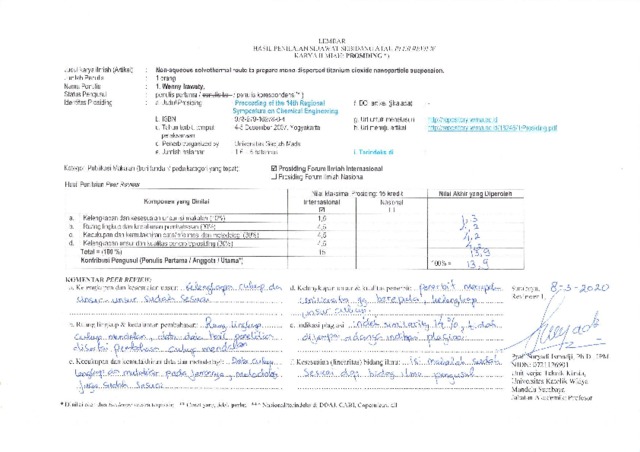 LEMBAR
HASIL PENILAIAN SEJAWAT SEBIDANG ATAU PEER REVIEW
KARYA ILMIAH: PROSIDING *)
Judul karya ilmiah (Artikel) : Non-aqueous solvothermal route to prepare mono-dispersed titanium dioxide nanoparticle suspension.
Jumlah Penulis : 1 orang
Nama Penulis : 1. Wenny Irawaty,
Status Pengusul : penulis pertama / / penulis korespondensi **)
Identitas Prosiding : a. Judul Prosiding : Proceeding of the 14th Regional Symposium on Chemical Engineering
b. ISBN
c. Tahun terbit, tempat pelaksanaan : 4-5 Desember 2007, Yogyakarta
d. Penerbit/organiser : Universitas Gadjah Mada
e. Jumlah halaman :
i. Terindeks di
Kategori Publikasi Makalah (beri tanda √ pada kategori yang tepat): ☑ Prosiding Forum Ilmiah Internasional
☐ Prosiding Forum Ilmiah Nasional
Hasil Penilaian Peer Review
Komponen yang Dinilai
Nilai Maksimal Prosiding: 15 kredit
Internasional ☑
Nasional ☐
Nilai Akhir yang Diperoleh
a. Kelengkapan dan kesesuaian unsur isi makalah (10%) 1,5 1,3
b. Ruang lingkup dan kedalaman pembahasan (30%) 4,5 4,2
c. Kecukupan dan kemutakhiran data/informasi dan metodologi (30%) 4,5 4,2
d. Kelengkapan unsur dan kualitas penerbit/prosiding (30%) 4,5 4,2
Total = (100 %) 15 13,9
Kontribusi Pengusul (Penulis Pertama / Anggota / Utama*) 100% = 13,9
KOMENTAR PEER REVIEW:
a. Kelengkapan dan kesesuaian unsur: kelengkapan cukup dan unsur-unsur sudah sesuai
b. Ruang lingkup & kedalaman pembahasan: Ruang lingkup cukup mendalam, data-data hasil penelitian disertai pembahasan cukup mendalam
c. Kecukupan dan kemutakhiran data & metodologi: Data cukup lengkap dan mutakhir pada jamannya, metodologi juga sudah sesuai
d. Kelengkapan unsur & kualitas penerbit: penerbit merupakan universitas yg bereputasi, kelengkapan unsur cukup.
e. Indikasi plagiasi: indek similarity 14%, tidak dijumpai adanya indikasi plagiasi
f. Kesesuaian (linieritas) bidang ilmu: isi makalah sudah sesuai dgn bidang ilmu pengusul
Surabaya, 8-3-2020
Reviewer 1,
Prof. Suryadi Ismadji, Ph.D., IPM
NIDN: 0721126901
Unit kerja: Teknik Kimia,
Universitas Katolik Widya
Mandala Surabaya
Jabatan Akademik: Profesor